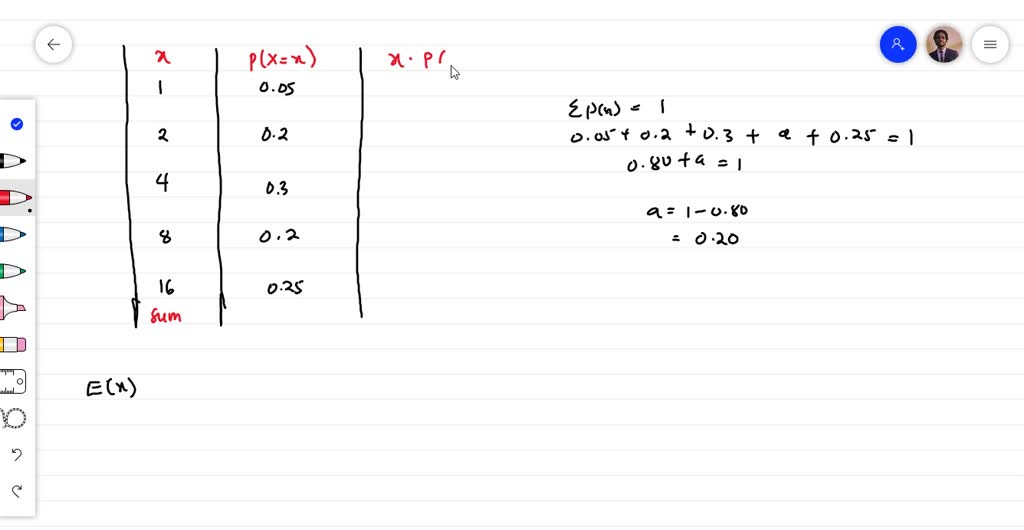 x P(X=x) x · P(
1 0.05
2 0.2
4 0.3
8 0.2
16 0.25
sum
Σp(x) = 1
0.05 + 0.2 + 0.3 + a + 0.25 = 1
0.80 + a = 1
a = 1 - 0.80
= 0.20
E(x)